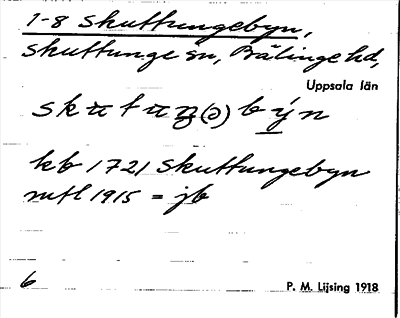 1-8 Skuttungebyn,
Skuttunge sn, Bälinge hd,
Uppsala län
kb 1721 Skuttungebyn
mtl 1915 = jb
6
P. M. Lijsing 1918